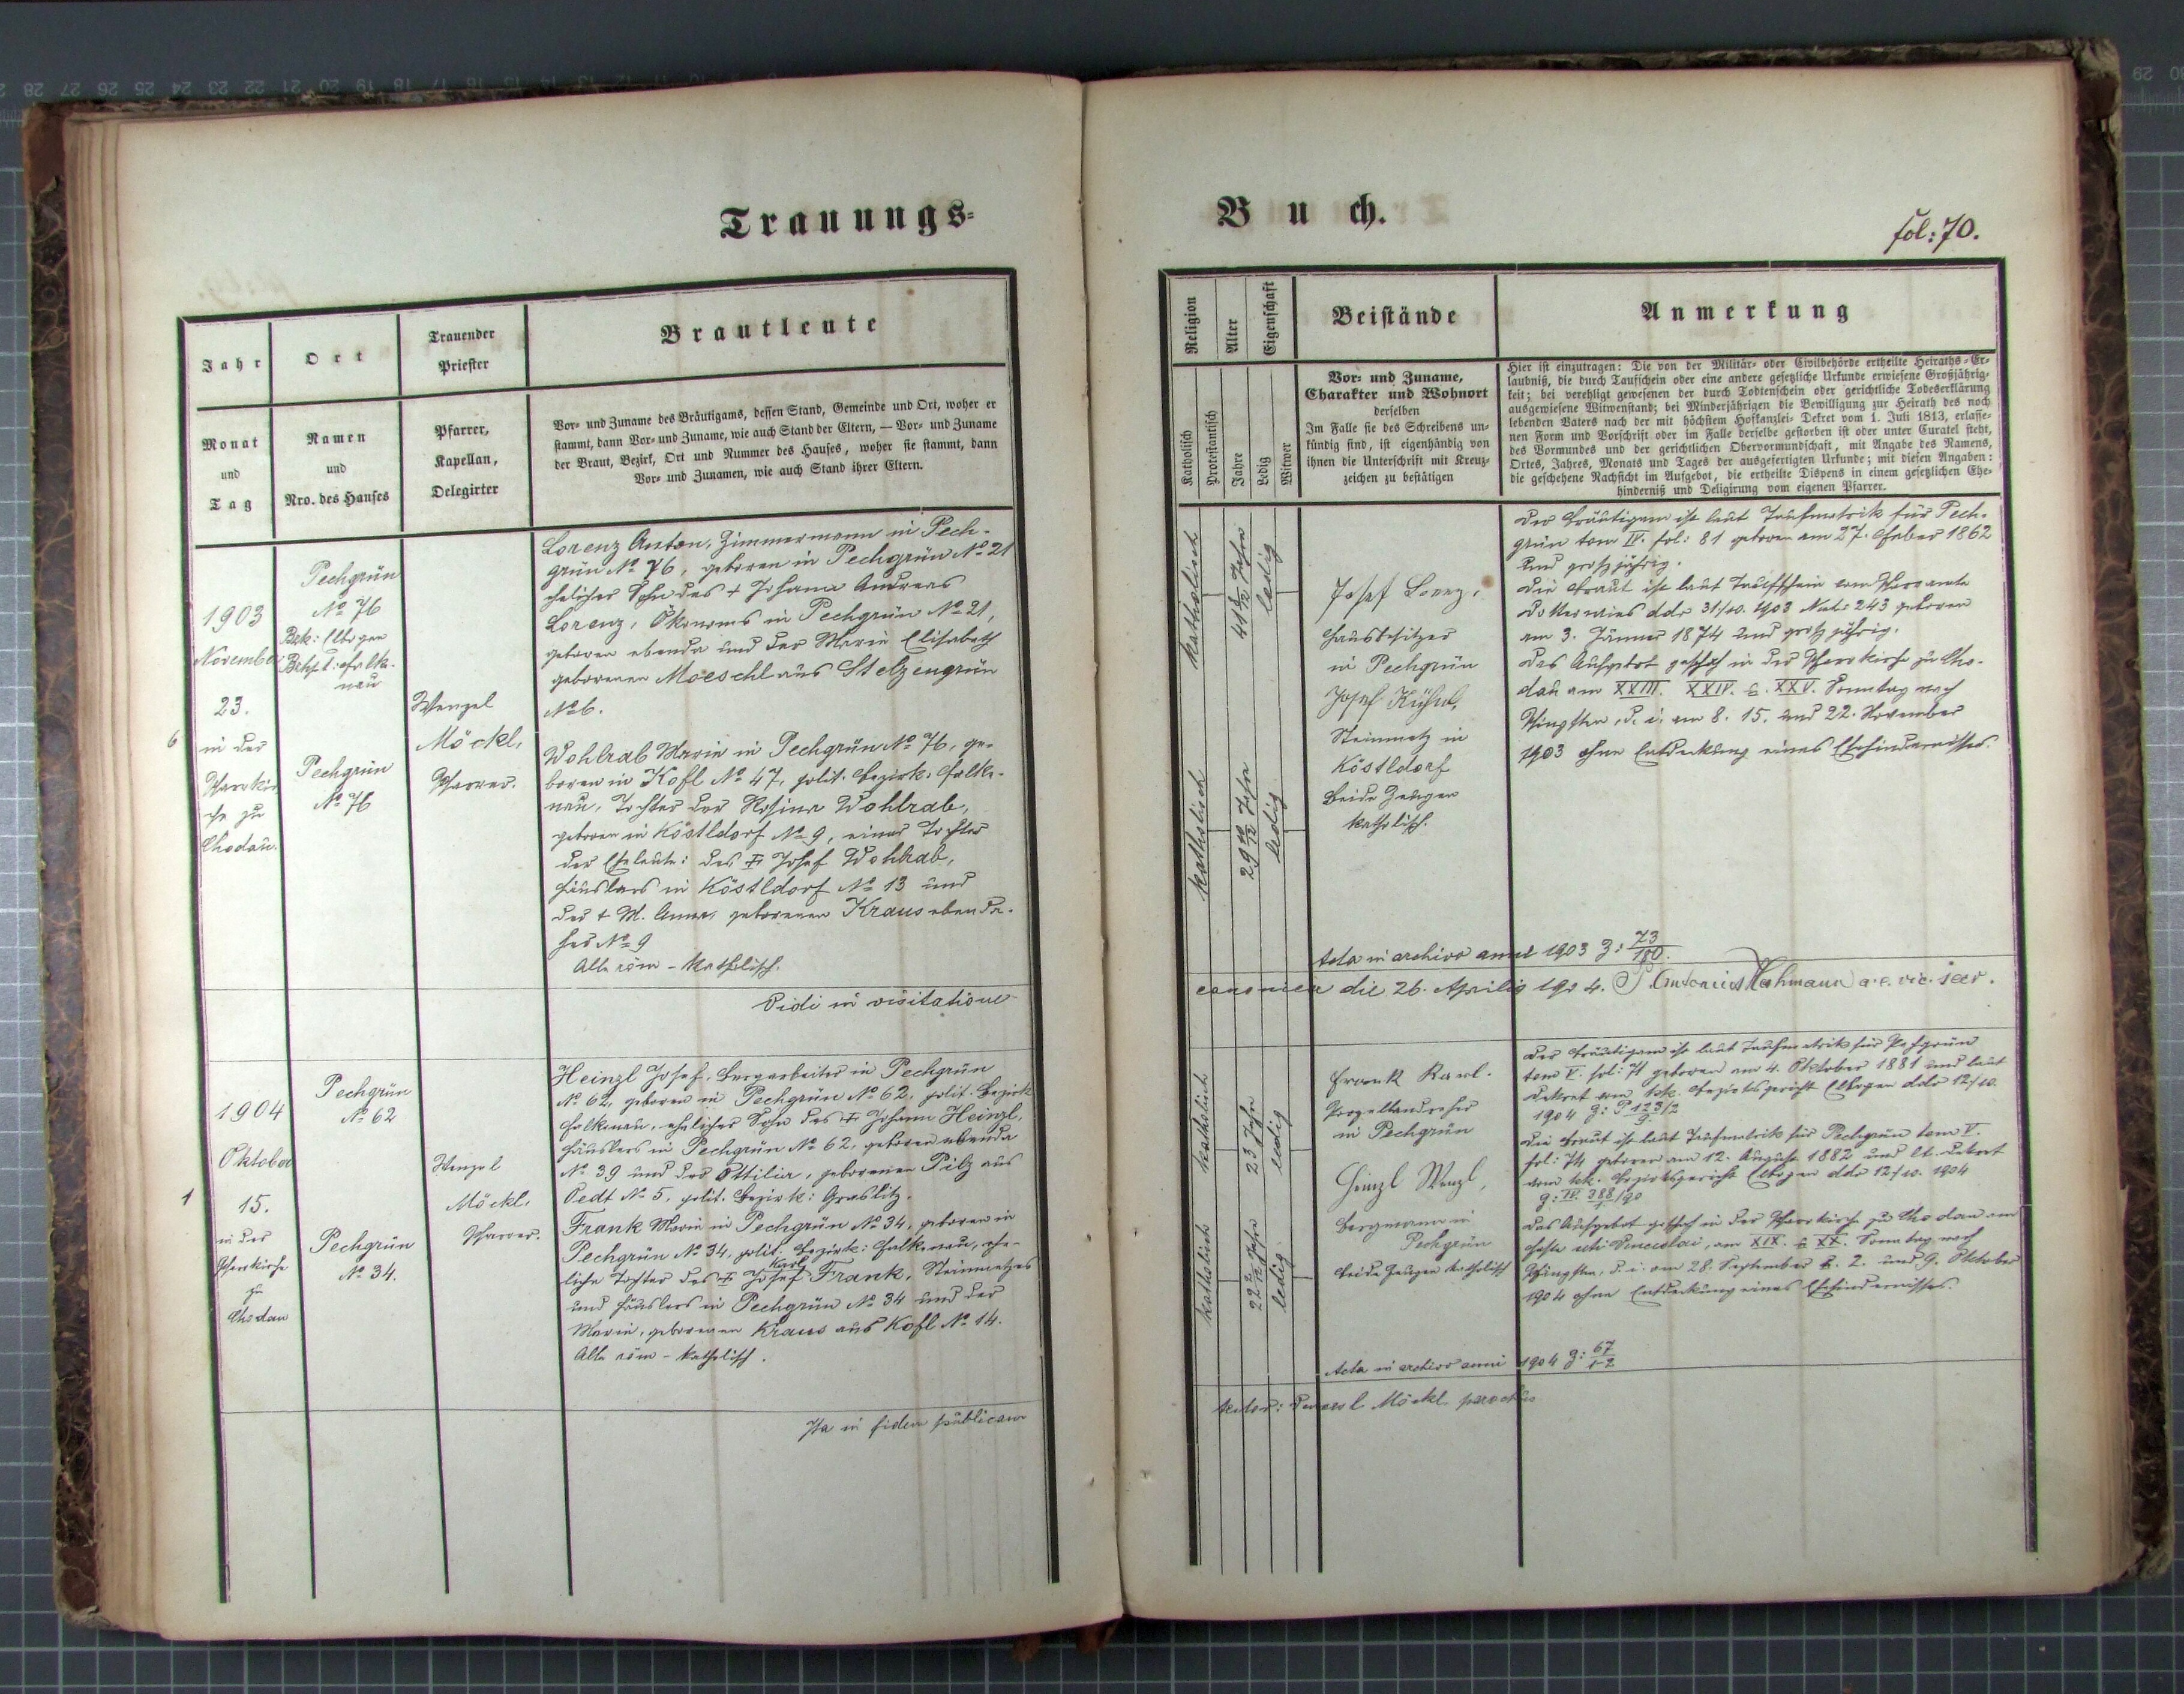 Trauungs-
Jahr
Monat
und
Tag
Ort
Namen
und
Nro. des Hauses
Trauender
Priester
Pfarrer,
Kapellan,
Delegirter
Brautleute
Vor- und Zuname des Bräutigams, dessen Stand, Gemeinde und Ort, woher er
stammt, dann Vor- und Zuname, wie auch Stand der Eltern, — Vor- und Zuname
der Braut, Bezirk, Ort und Nummer des Hauses, woher sie stammt, dann
Vor- und Zunamen, wie auch Stand ihrer Eltern.
6
1903
November
23.
in der
Pfarrkir
che zu
Chodau.
Pechgrün
No 76
Bzk: Elbogen
Falke-
nau
Pechgrün
No 76
Wenzel
Möckl,
Pfarrer.
Lorenz Anton, Zimmermann in Pech-
grün No 76, geboren in Pechgrün No 21
ehelicher Sohn des + Johann Andreas
Lorenz, Ökonoms in Pechgrün No 21,
geboren ebenda und der Maria Elisabeth
geborenen Moeschl aus Stelzengrün
No 6.
Wohlrab Maria in Pechgrün No 76, ge-
boren in Kofl No 47, polit. Bezirk: Falke-
nau, Tochter der Rosina Wohlrab,
geboren in Köstldorf No 9, einer Tochter
der Eheleute: des + Josef Wohlrab,
Häuslers in Köstldorf No 13 und
der + M. Anna, geborenen Kraus ebenda-
her No 9
Alle röm - katholisch.
Vidi in visitatione
1
1904
Oktober
15.
in der
Pfarrkirche
zu
Chodau
Pechgrün
No 62
Pechgrün
No 34.
Wenzel
Möckl,
Pfarrer.
Heinzl Josef, Bergarbeiter in Pechgrün
No 62, geboren in Pechgrün No 62, polit. Bezirk
Falkenau, ehelicher Sohn des + Johann Heinzl,
Häuslers in Pechgrün No 62, geboren ebenda
No 39 und der Ottilia, geborenen Pilz aus
Oedt No 5, polit. Bezirk: Graslitz.
Frank Maria in Pechgrün No 34, geboren in
Pechgrün No 34, polit. Bezirk: Falkenau, ehe-
Karl
liche Tochter des + Josef Frank, Steinmetzes
und Häuslers in Pechgrün No 34 und der
Maria, geborenen Kraus aus Kofl No 14.
Alle röm - katholisch.
Ita in fidem publicam
Buch.
fol: 70.
Religion
Alter
Eigenschaft
Katholisch
Protestantisch
Jahre
Ledig
Witwer
Beistände
Vor- und Zuname,
Charakter und Wohnort
derselben
Im Falle sie des Schreibens un-
kündig sind, ist eigenhändig von
ihnen die Unterschrift mit Kreuz-
zeichen zu bestätigen
Anmerkung
Hier ist einzutragen: Die von der Militär- oder Civilbehörde ertheilte Heiraths-Er-
laubniß, die durch Taufschein oder eine andere gesetzliche Urkunde erwiesene Großjährig-
keit; bei verehligt gewesenen der durch Todtenschein oder gerichtliche Todeserklärung
ausgewiesene Witwenstand; bei Minderjährigen die Bewilligung zur Heirath des noch
lebenden Vaters nach der mit höchstem Hofkanzlei- Dekret vom 1. Juli 1813, erlasse-
nen Form und Vorschrift oder im Falle derselbe gestorben ist oder unter Curatel steht,
des Vormundes und der gerichtlichen Obervormundschaft, mit Angabe des Namens,
Ortes, Jahres, Monats und Tages der ausgefertigten Urkunde; mit diesen Angaben:
die geschehene Nachsicht im Aufgebot, die ertheilte Dispens in einem gesetzlichen Ehe-
hinderniß und Deligirung vom eigenen Pfarrer.
katholisch
Jahre
ledig
katholisch
29 10/12 Jahre
ledig
Josef Lorenz,
Hausbesitzer
in Pechgrün
Josef Kühnl,
Steinmetz in
Köstldorf
Beide Zeugen
katholisch.
Der Bräutigam ist laut Taufmatrik für Pech-
grün tom IV. fol: 81 geboren am 27. Feber 1862
und großjährig.
Die Braut ist laut Taufschein vom Pfarramte
ddo 31/10. 1903 Nat: 243 geboren
am 3. Jänner 1874 und großjährig.
Das Aufgebot geschah in der Pfarrkirche zu Cho-
dau am XXIII. XXIV. & XXV. Sonntag nach
Pfingsten, d. i. am 8. 15. und 22. November
1903 ohne Entdeckung eines Ehehindernisses.
Acta in archivo anni 1903 Z: 73/180.
canonica die 26. Aprilis 1904. P. Antonius a.e. vic. secr.
katholisch
23 Jahre
ledig
katholisch
22 2/12 Jahre
ledig
Frank Karl.
Porzellandreher
in Pechgrün
Heinzl Wenzl,
Bergmann in
Pechgrün
Beide Zeugen katholisch
Der Bräutigam ist laut Taufmatrik für Pechgrün
tom V. fol: 71 geboren am 4. Oktober 1881 und laut
Dekret vom k.k. Bezirksgericht Elbogen ddo 12/10.
1904 Z: P 123/2
Die Braut ist laut Taufmatrik für Pechgrün tom V.
fol: 74 geboren am 12. August 1882 und lt. Dekret
vom k.k. Bezirksgericht Elbogen ddo 12/10. 1904
Das Aufgebot geschah in der Pfarrkirche zu Chodau am
Feste scti Venceslai, am XIX. & XX. Sonntag nach
Pfingsten, d. i. am 28. September & 2. und 9. Oktober
1904 ohne Entdeckung eines Ehehindernisses.
Acta in archivo anni 1904 Z: 67/1-2
Möckl, parochus